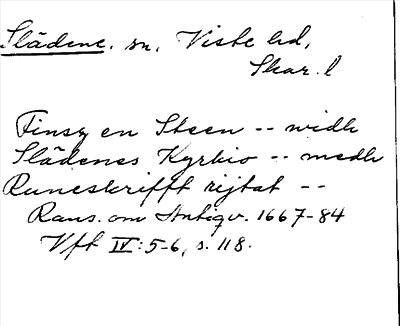 Slädene. sn, Viste hd,
Skar. l
Finsz en Steen -- widh
Slädenes Kyrkio -- medh
Runeskrifft rijtat --
Rans. om Antiqv. 1667-84
Vft IV:5-6, s. 118.